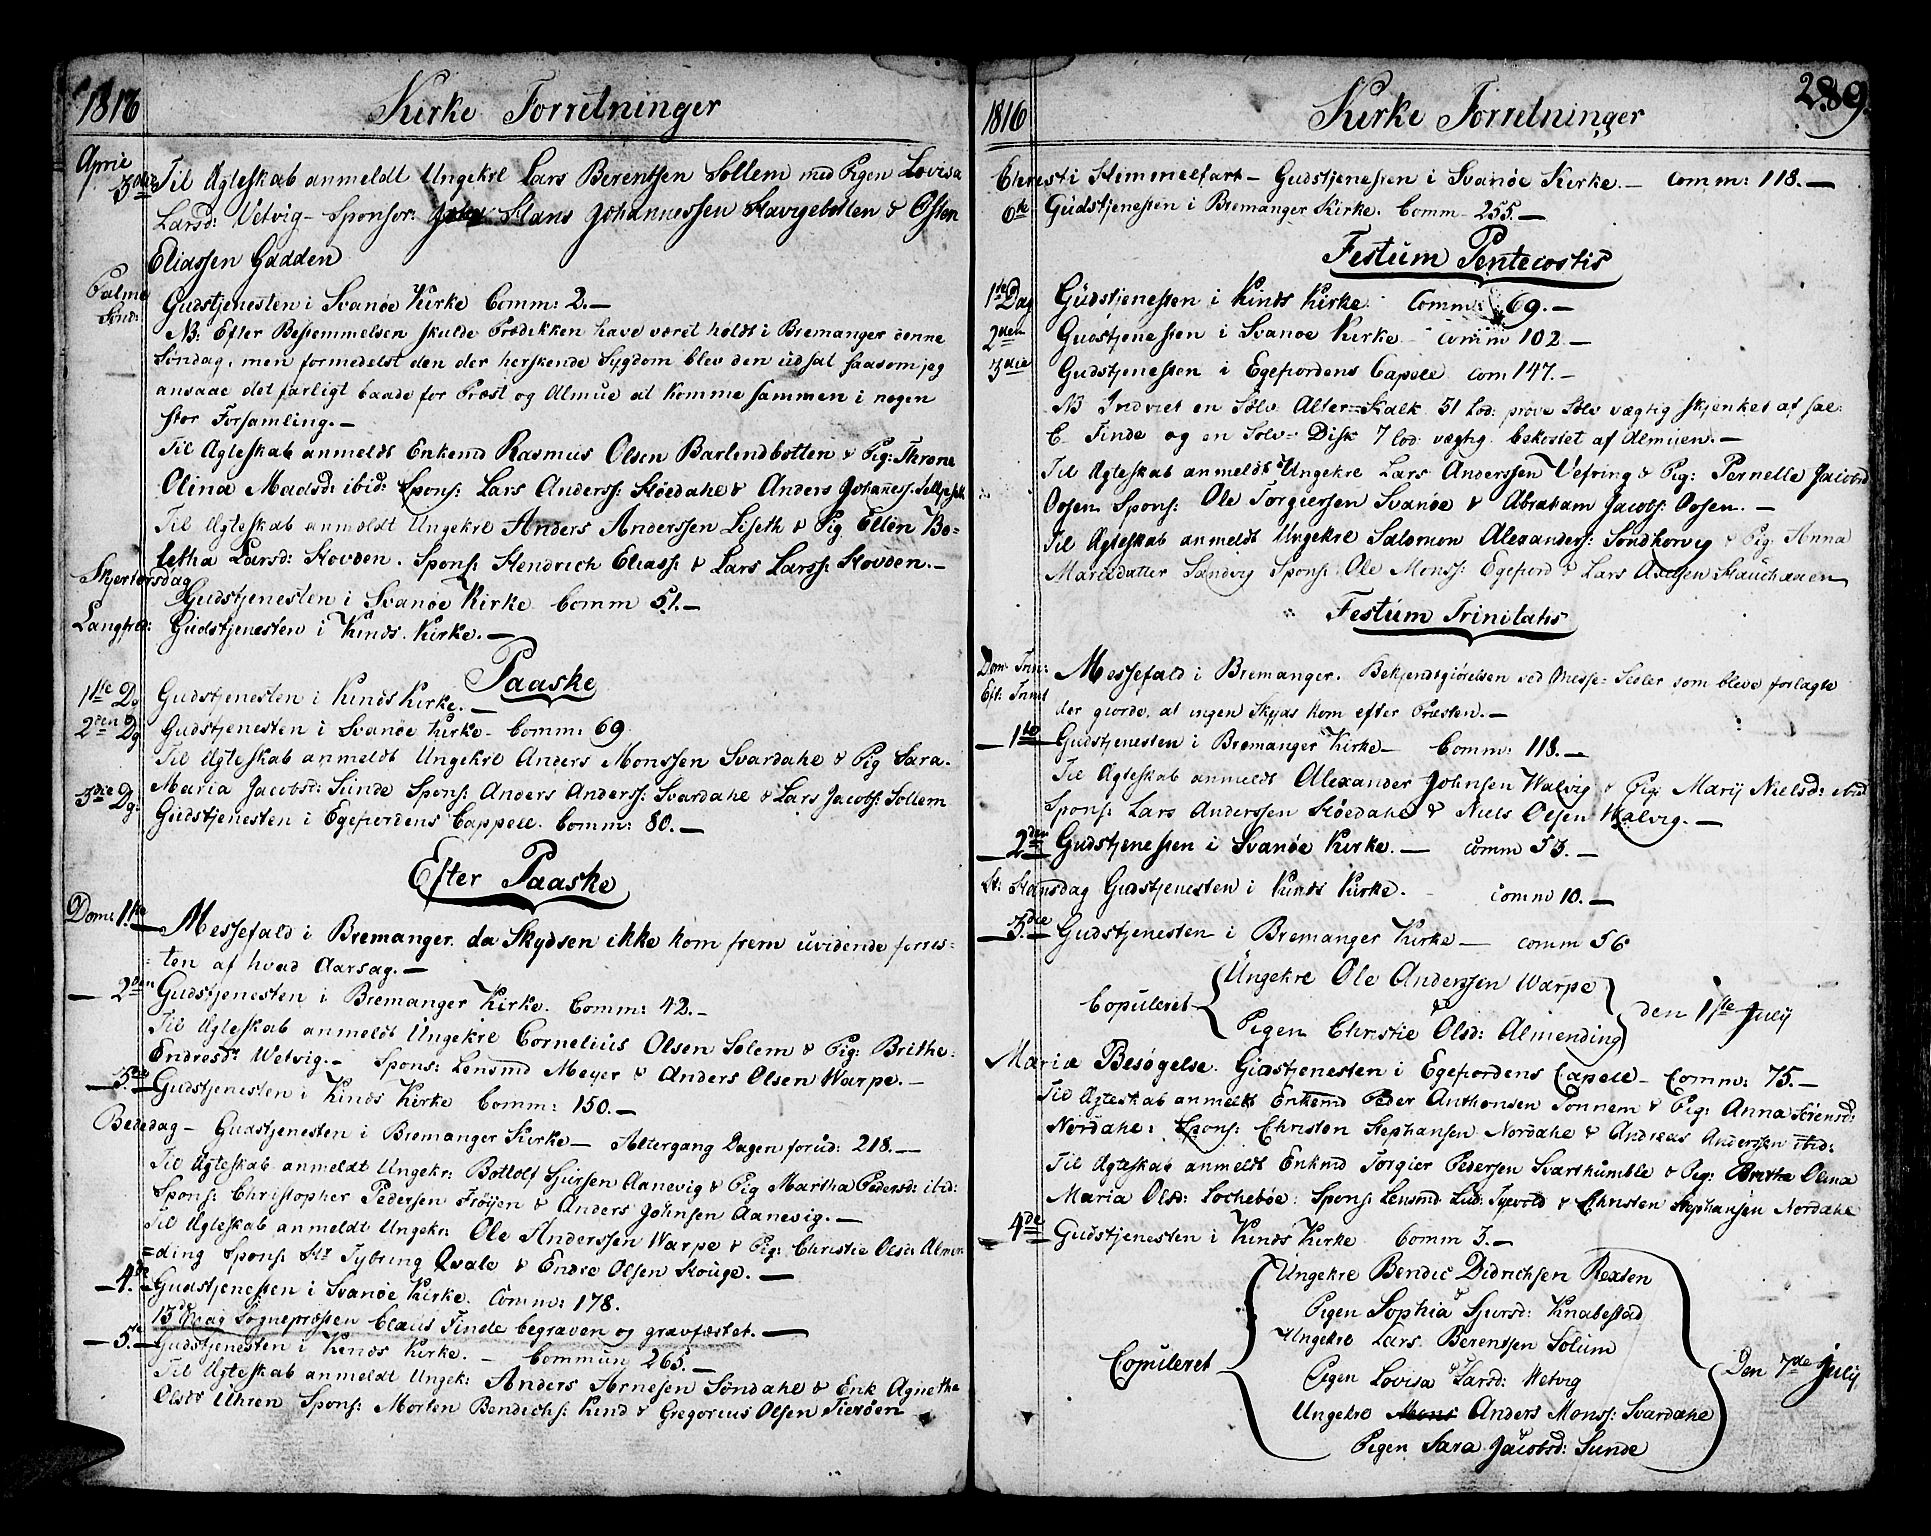 1816 Kirke Forretninger
April
3die Til Ægteskab anmeldt Ungekrl Lars Berentsen Sollem med Pigen Lovisa
Larsd: Vetvig – Sponsor: Hans Johannessen Havigebotten & Osten
Eliassen Gadden
Palme
Sønd: Gudstjenesten i Svanøe Kirke Comm: 2. –
NB: Efter Bestemmelsen skulde Prædikken have været holdt i Bremanger denne
Søndag, men formedelst den der herskende Sygdom blev den udsat saasom jeg
ansaae det farligt baade for Præst og Almue at komme sammen i nogen
stor Forsamling. –
Til Ægteskab anmeldt Enkemd Rasmus Olsen Barlindbotten & Pig: Throne
Olina Madsd: ibid: Spons: Lars Anderss: Høedahl & Anders Johañes: Selljeset
Til Ægteskab anmeldt Ungekrl Anders Anderssen Liseth & Pig Ellen Bo-
letha Larsd: Hovden. Spons: Hendrich Eliass: & Lars Larss: Hovden. –
Skjertorsdag
Gudstjenesten i Svanøe Kirke Comm 51. –
Langfred: Gudstjenesten i Kinds Kirke. –
Paaske
1ste Dg Gudstjenesten i Kinds Kirke. –
2den Dg Gudstjenesten i Svanøe Kirke – Comm: 69
Til Ægteskab anmeldt Ungekrl Anders Monssen Svardahl & Pig Sara
Maria Jacobsd: Sunde Spons: Anders Anderss: Svardahl & Lars Jacobs: Sollem
3die Dg: Gudstjenesten i Egefiordens Cappell. Comm: 80. –
Efter Paaske
Dom: 1ste – Messefald i Bremanger da Skydsen ikke kom frem uvidende forres-
ten af hvad Aarsag. –
– 2den Gudstjenesten i Bremanger Kirke. Comm: 42. –
Til Ægteskab anmeldt Ungekrl Cornelius Olsen Solem & Pig: Brithe
Endresdr Wetvig. – Spons: Lensmd Meyer & Anders Olsen Warpe. –
– 3die – Gudstjenesten i Kinds Kirke Comm: 150. –
Bededag – Gudstjenesten i Bremanger Kirke – Altergang Dagen forud: 218. –
Til Ægteskab anmeldt Ungekr: Bottolf Sjursen Aanevig & Pig Martha Pedersd: ibid:
Spons: Christopher Pedersen Frøijen & Anders Johnsen Aanevig. –
Til Ægteskab anmeldt Ungekr: Ole Anderssen Warpe & Pig: Christie Olsd: Almen-
ding Spons: Hr Tybring Qvale & Endre Olsen Kouge. –
– 4de Gudstjenesten i Svanøe Kirke. Comm: 178.
Sognepræsten Claus Finde begraven og gravfæstet. –
– 5te – Gudstjenesten i Kinds Kirke. – Commun 265. –
Til Ægteskab anmeldt Ungek: Anders Arnesen Søndahl & Enk Agnethe
Olsdr Uhren Spons: Morten Bendichs: Kind & Gregorius Olsen Tierøen
1816 Kirke Forretninger 289.
Christi Himmelfart – Gudstjenesten i Svanøe Kirke. – Comm: 118. –
6te Gudstjenesten i Bremanger Kirke. Comm 255. –
Festum Pentecostis
1ste Dag Gudstjenesten i Kinds Kirke Comm: 69. –
2den Gudstjenesten i Svanøe Kirke – comm 102 –
3die Gudstjenesten i Egefiordens Capele com 147. –
NB Indviet en Sølv Alter=Kalk 51 Lod: prøve Sølv vægtig skjenket af sal:
C Finde og en Sølv= Disk 7 lod vægtig bekostet af Almuen. –
Til Ægteskab anmeldt Ungekrl Lars Anderssen Vefring & Pig: Pernelle Jacobsd
Oosen Spons: Ole Torgiersen Svanøe & Abraham Jacobs: Oosen. –
Til Ægteskab anmeldt Ungekrl Salomon Alexanders: Sondhorvig & Pig: Anna
Mariedatter Sandvig Spons: Ole Monss: Egefiord & Lars Axelsen Hauehauen
Festum Trinitatis
Dom Trin: Messefald i Bremanger. Bekjendtgiørelsen ved Messe=Sedler som bleve forlagte
Eft: Trinit der giorde, at ingen Skyds kom efter Præsten. –
– 1ste Gudstjenesten i Bremanger Kirke – Comm: 118. –
Til Ægteskab anmeldt Alexander Johnsen Walvig & Pig: Marij Nielsd: ibid
Spons: Lars Anderssen Høedahl & Niels Olsen Walvig. –
– 2den Gudstjenesten i Svanøe Kirke. – comm 53. –
St: Hansdag Gudstjenesten i Kinds Kirke. comm 10. –
– 3die – Gudstjenesten i Bremanger Kirke – comm 56
Ungekrl Ole Anderssen Warpe
Copuleret & den 1ste July
Pigen Christie Olsd: Almending
Mariæ Besøgelse. Gudstjenesten i Egefiordens Capele – Comm: 75. –
Til Ægteskab anmeldt Enkemd Peder Anthonsen Tonnem & Pig: Anna Steensd:
Nordahl: Spons: Christen Stephansen Nordahl & Andreas Anderssen ibid:
Til Ægteskab anmeldt Enkmd Torgier Pedersen Svarthumble & Pig: Brithe Olina
Maria Olsd: Lochebøe: Spons: Lensmd Lud: Tyevold & Christen Stephansen Nordahl
– 4de Gudstjenesten i Kinds Kirke Comm 3. –
Ungekrl Bendic Didrichsen Rexten
&
Pigen Sophia Sjursd: Knabestad
Ungekrl Lars Berentsen Solum
Copuleret & Den 7de July
Pigen Lovisa Larsd: Wetvig
Ungekrl Mons Anders Monss: Svardahl
&
Pigen Sara Jacobsd: Sunde